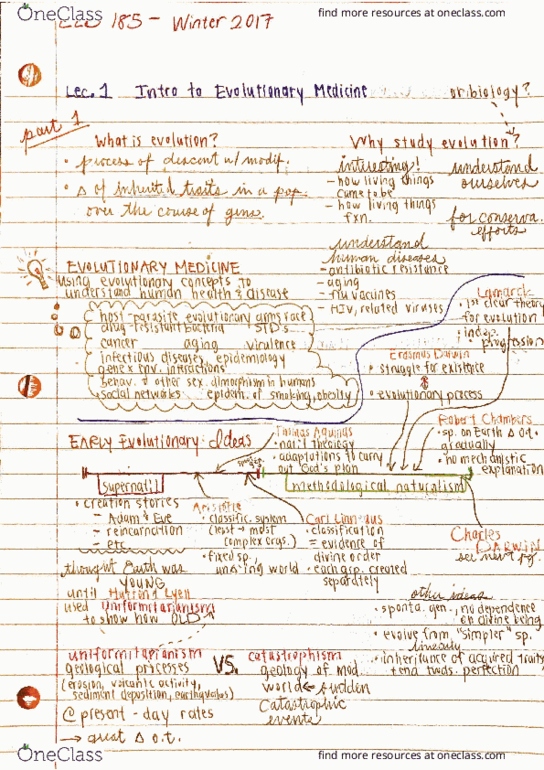 OneClass
find more resources at oneclass.com
185 - Winter 2017
Lec. 1 Intro to Evolutionary Medicine
or biology?
part 1
What is evolution?
• process of descent w/ modif.
• Δ of inherited traits in a pop.
over the course of gens.
Why study evolution?
interesting!
- how living things
came to be
- how living things
fxn.
understand
ourselves
for conserva.
efforts
understand
human diseases
- antibiotic resistance
- aging
- flu vaccines
- HIV, related viruses
EVOLUTIONARY MEDICINE
using evolutionary concepts to
understand human health & disease
host-parasite evolutionary arms race
drug-resistant bacteria STD's
cancer aging virulence
infectious diseases, epidemiology
gene x env. interactions
behav. & other sex. dimorphism in humans
social networks epidem. of smoking, obesity
Lamarck
• 1st clear theory
for evolution
• indep.
progression
Erasmus Darwin
• struggle for existence
• evolutionary process
Robert Chambers
• sp. on Earth Δ o.t.
gradually
• no mechanistic
explanation
EARLY Evolutionary Ideas
Thomas Aquinas
• nat'l theology
• adaptations to carry
out God's plan
supernat'l
methodological naturalism
• creation stories
- Adam & Eve
- reincarnation
- etc.
Aristotle
• classific. system
(least → most
complex orgs.)
• fixed sp.,
unΔing world
Carl Linnaeus
• classification
= evidence of
divine order
• each grp. created
separately
Charles
DARWIN
see next pg.
thought Earth was
YOUNG
until Hutton & Lyell
used Uniformitarianism
to show how OLD
other ideas
• sponta. gen., no dependence
on divine being
• evolve from "simpler" sp.
linearly
• inheritance of acquired traits
tend twds. perfection
uniformitarianism
geological processes
(erosion, volcanic activity,
sediment deposition, earthquakes)
@ present-day rates
→ great Δ o.t.
VS.
catastrophism
geology of mod.
world ← sudden
catastrophic
events
OneClass
find more resources at oneclass.com